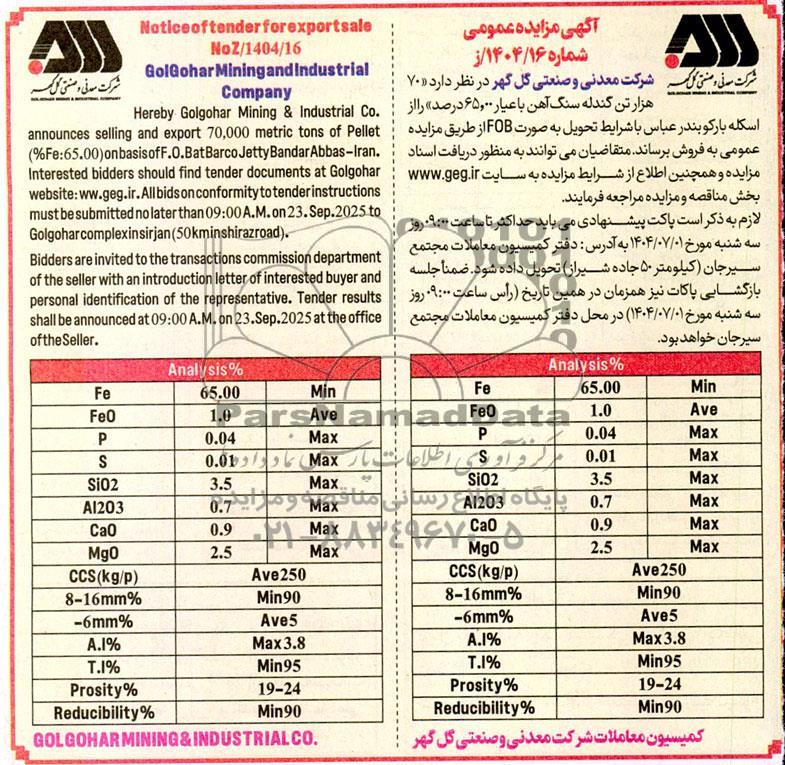 Notice of tender for export sale
No Z/1404/16
GolGohar Mining and Industrial
Company
شرکت معدنی و صنعتی گل گهر
GOLGOHAR MINING & INDUSTRIAL COMPANY
Hereby Golgohar Mining & Industrial Co.
announces selling and export 70,000 metric tons of Pellet
(%Fe:65.00) on basis of F.O.B at Barco Jetty Bandar Abbas-Iran.
Interested bidders should find tender documents at Golgohar
website: ww.geg.ir. All bids on conformity to tender instructions
must be submitted no later than 09:00 A.M. on 23. Sep. 2025 to
Golgohar complex in sirjan (50km in shiraz road).
Bidders are invited to the transactions commission department
of the seller with an introduction letter of interested buyer and
personal identification of the representative. Tender results
shall be announced at 09:00 A.M. on 23. Sep. 2025 at the office
of the Seller.
Analysis%
Fe 65.00 Min
FeO 1.0 Ave
P 0.04 Max
S 0.01 Max
SiO2 3.5 Max
Al2O3 0.7 Max
CaO 0.9 Max
MgO 2.5 Max
CCS(kg/p) Ave250
8-16mm% Min90
-6mm% Ave5
A.I% Max3.8
T.I% Min95
Prosity% 19-24
Reducibility% Min90
GOLGOHAR MINING & INDUSTRIAL CO.
آگهی مزایده عمومی
شماره ۱۴۰۴/۱۶/ز
شرکت معدنی و صنعتی گل گهر
GOLGOHAR MINING & INDUSTRIAL COMPANY
شرکت معدنی و صنعتی گل گهر در نظر دارد «۷۰
هزار تن گندله سنگ آهن با عیار ۶۵٫۰۰ درصد» را از
اسکله بارکو بندر عباس با شرایط تحویل به صورت FOB از طریق مزایده
عمومی به فروش برساند. متقاضیان می توانند به منظور دریافت اسناد
مزایده و همچنین اطلاع از شرایط مزایده به سایت www.geg.ir
بخش مناقصه و مزایده مراجعه فرمایند.
لازم به ذکر است پاکت پیشنهادی می باید حداکثر تا ساعت ۰۹:۰۰ روز
سه شنبه مورخ ۱۴۰۴/۰۷/۰۱ به آدرس: دفتر کمیسیون معاملات مجتمع
سیرجان (کیلومتر ۵۰ جاده شیراز) تحویل داده شود. ضمناً جلسه
بازگشایی پاکات نیز همزمان در همین تاریخ (رأس ساعت ۰۹:۰۰ روز
سه شنبه مورخ ۱۴۰۴/۰۷/۰۱) در محل دفتر کمیسیون معاملات مجتمع
سیرجان خواهد بود.
Analysis%
Fe 65.00 Min
FeO 1.0 Ave
P 0.04 Max
S 0.01 Max
SiO2 3.5 Max
Al2O3 0.7 Max
CaO 0.9 Max
MgO 2.5 Max
CCS(kg/p) Ave250
8-16mm% Min90
-6mm% Ave5
A.I% Max3.8
T.I% Min95
Prosity% 19-24
Reducibility% Min90
کمیسیون معاملات شرکت معدنی و صنعتی گل گهر
ParsNamadData
مرکز فرآوری اطلاعات پارس نماد داده ها
پایگاه اطلاع رسانی مناقصه و مزایده
۰۲۱-۸۸۳۴۹۶۷۰-۵